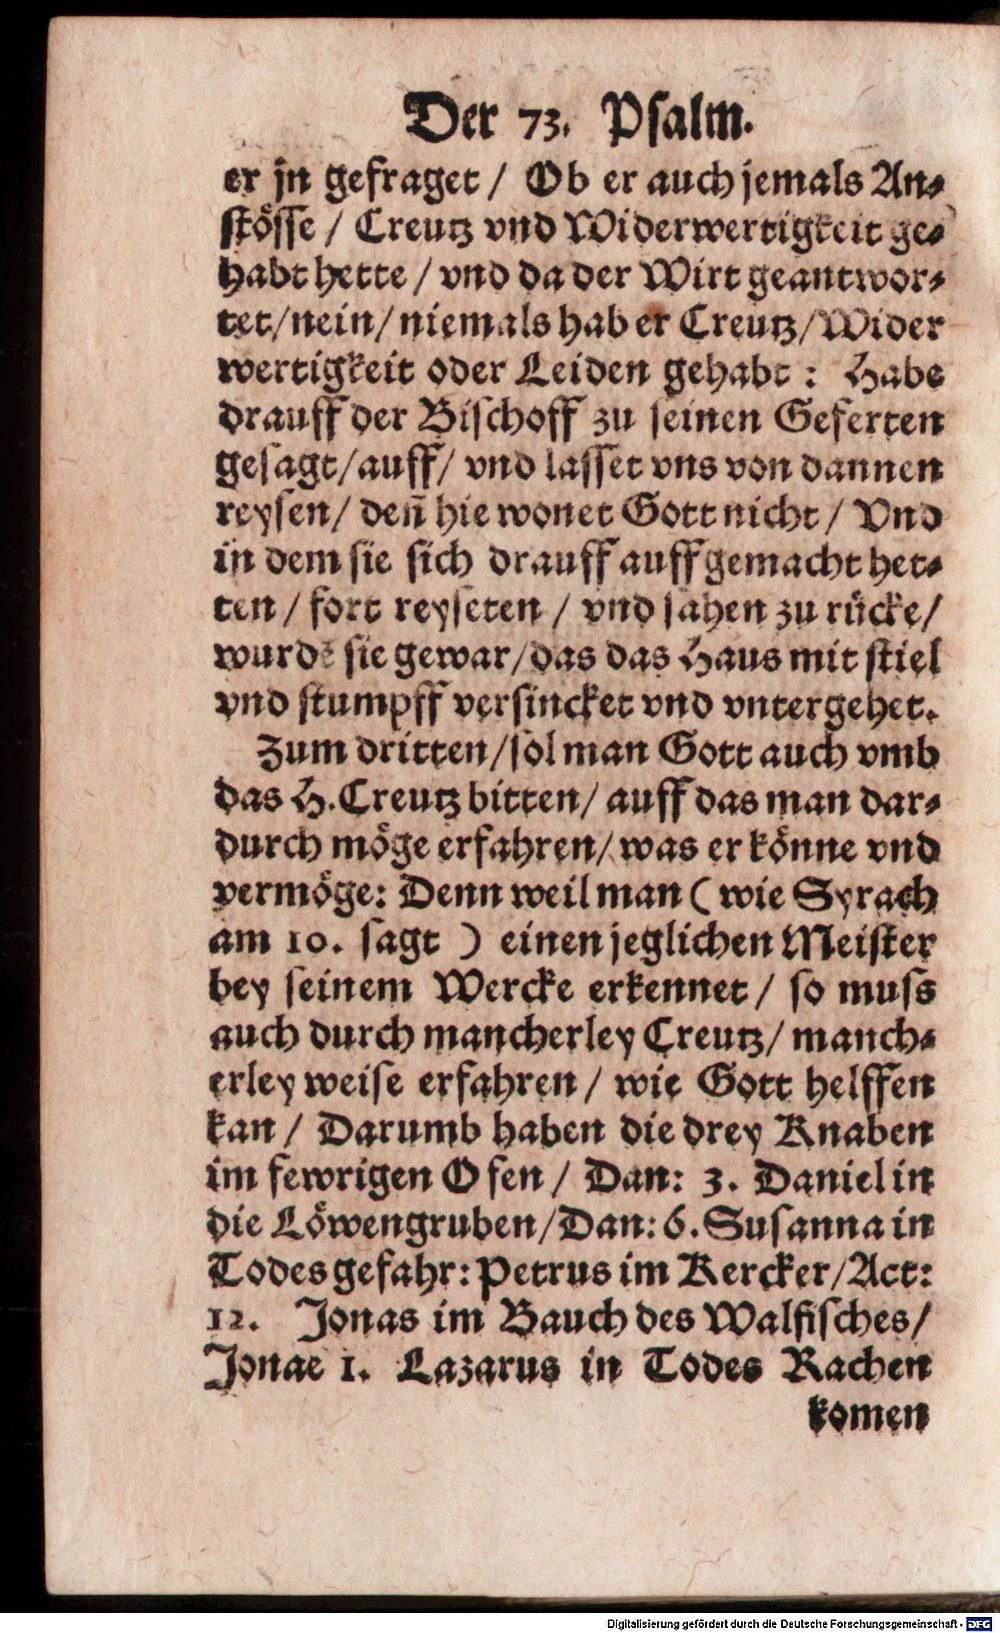 Der 73. Psalm.
er jn gefraget / Ob er auch jemals An-
stösse / Creutz vnd Widerwertigkeit ge-
habt hette / vnd da der Wirt geantwor-
tet/nein/niemals hab er Creutz/Wider
wertigkeit oder Leiden gehabt : Habe
drauff der Bischoff zu seinen Geferten
gesagt/auff/ vnd lasset vns von dannen
reysen/ den̄ hie wonet Gott nicht / Vnd
in dem sie sich drauff auffgemacht het-
ten / fort reyseten / vnd sahen zu rücke/
wurdē sie gewar/das das Haus mit stiel
vnd stumpff versincket vnd vntergehet.
Zum dritten/sol man Gott auch vmb
das H. Creutz bitten/ auff das man dar-
durch möge erfahren/ was er könne vnd
vermöge: Denn weil man ( wie Syrach
am 10. sagt ) einen jeglichen Meister
bey seinem Wercke erkennet / so muss
auch durch mancherley Creutz/ manch-
erley weise erfahren / wie Gott helffen
kan / Darumb haben die drey Knaben
im fewrigen Ofen / Dan: 3. Daniel in
die Löwengruben/Dan: 6. Susanna in
Todesgefahr: Petrus im Kercker/Act:
12. Jonas im Bauch des Walfisches/
Jonae 1. Lazarus in Todes Rachen
komen
Digitalisierung gefördert durch die Deutsche Forschungsgemeinschaft - DFG